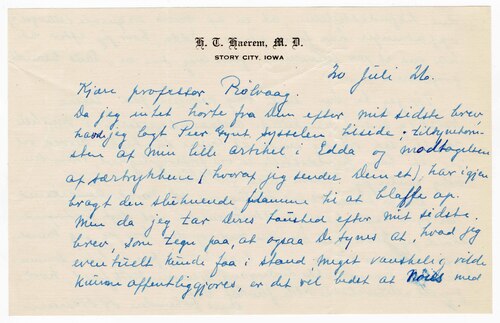 H. T. Haerem, M. D.
STORY CITY, IOWA
20 Juli 26.
Kjære professor Rölvaag.
Da jeg intet hörte fra Dem efter mit sidste brev,
havde jeg lagt Peer Gynt sysselen tilside; tilsynekom-
sten af min lille artikel i Edda og modtagelsen
af særtrykkene (hvoraf jeg sender Dem et), har igjen
bragt den sluknende flamme til at blaffe op.
Men da jeg tar Deres taushed efter mit sidste
brev, som tegn paa, at ogsaa De synes at, hvad jeg
eventuelt kunde faa i stand, meget vanskelig vilde
kunne offentliggjöres, er det vel bedst at nöies med